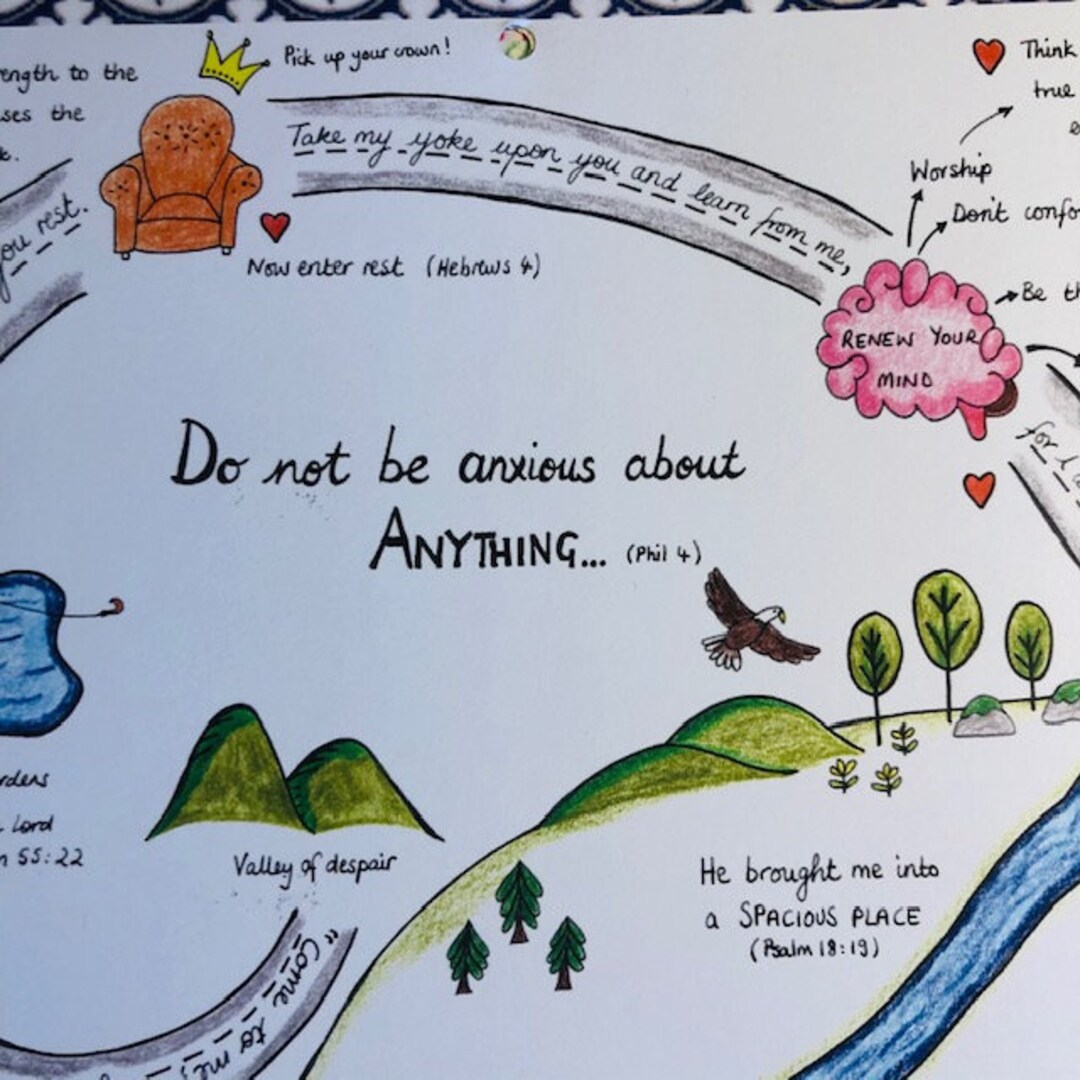 Pick up your crown!
ength to the
ses the
Take my yoke upon you and learn from me,
you rest.
Now enter rest (Hebrews 4)
Think
true
Worship
Don't confo
Be th
RENEW YOUR
MIND
for I a
Do not be anxious about
ANYTHING... (Phil 4)
rdens
Lord
55:22
Valley of despair
He brought me into
a SPACIOUS PLACE
(Psalm 18:19)
"Come to me,